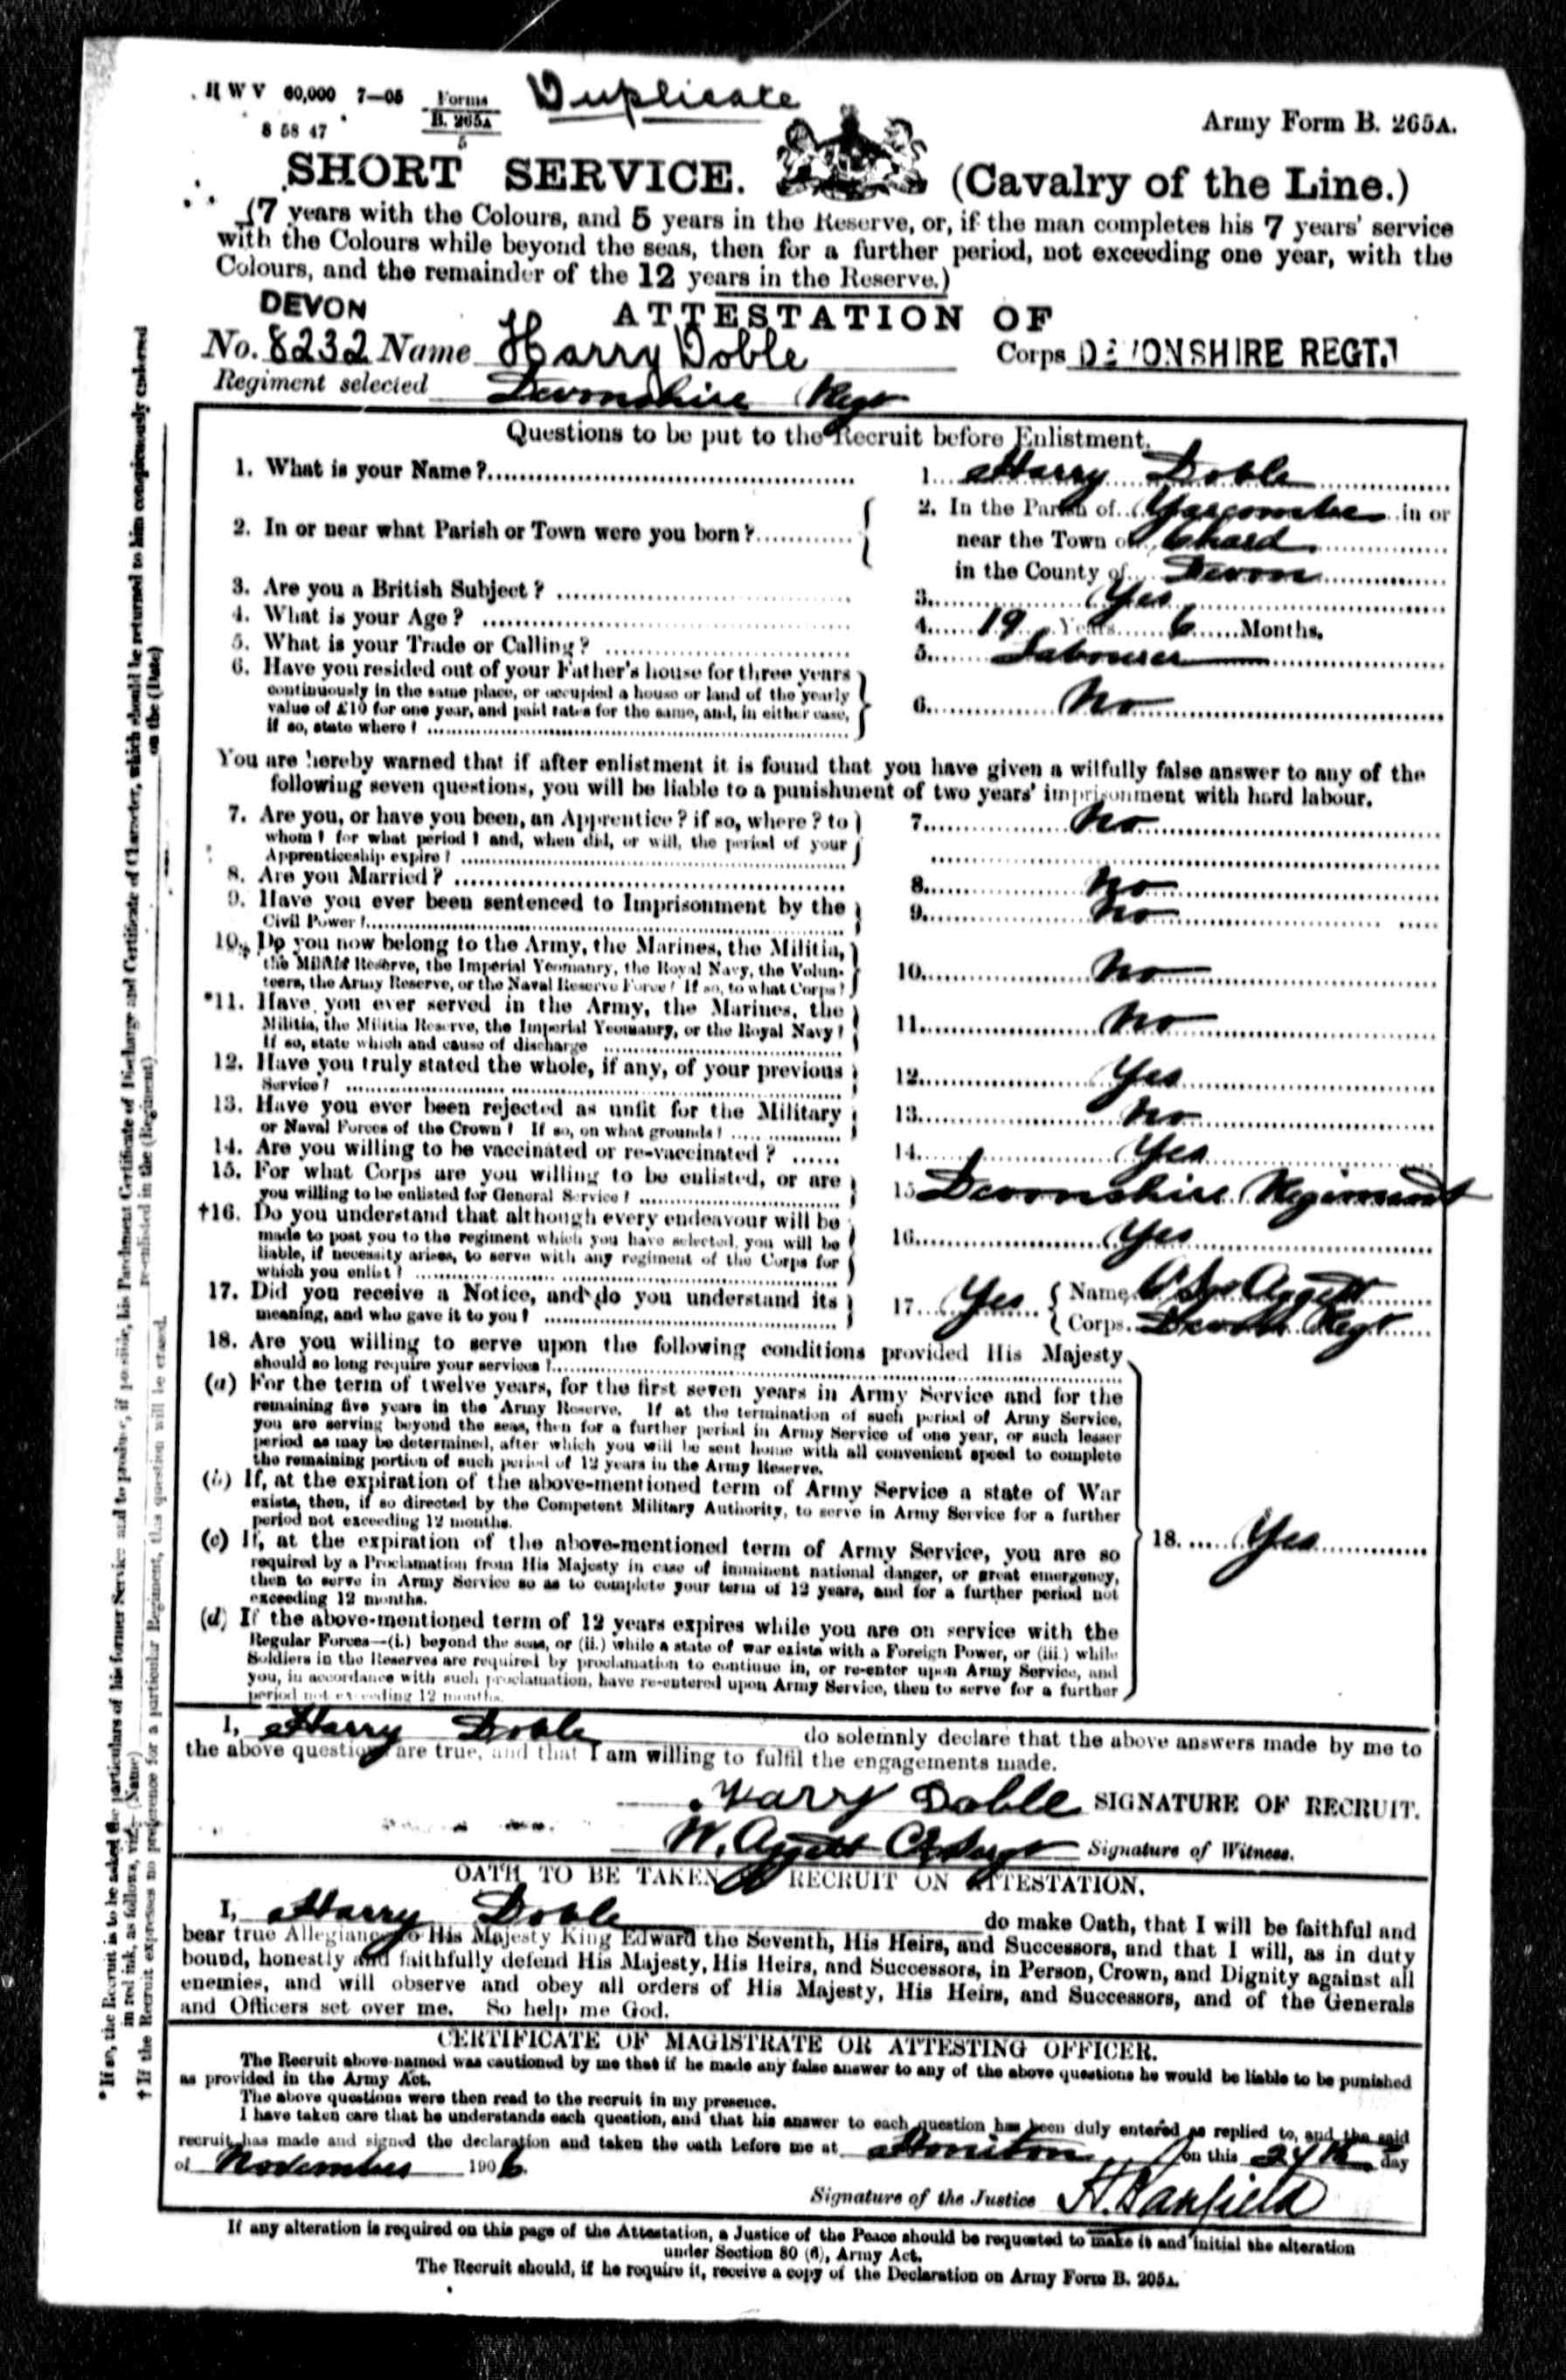 H W V 60,000 7—05 Forms B. 265A 5
8 58 47
Duplicate
Army Form B. 265A.
SHORT SERVICE. (Cavalry of the Line.)
(7 years with the Colours, and 5 years in the Reserve, or, if the man completes his 7 years' service
with the Colours while beyond the seas, then for a further period, not exceeding one year, with the
Colours, and the remainder of the 12 years in the Reserve.)
DEVON
ATTESTATION OF
No. 8232 Name Harry Doble Corps DEVONSHIRE REGT.
Regiment selected Devonshire Regt
Questions to be put to the Recruit before Enlistment.
1. What is your Name? 1. Harry Doble
2. In or near what Parish or Town were you born? 2. In the Parish of Yarcombe in or
near the Town of Chard
in the County of Devon
3. Are you a British Subject? 3. Yes
4. What is your Age? 4. 19 Years 6 Months.
5. What is your Trade or Calling? 5. Labourer
6. Have you resided out of your Father's house for three years
continuously in the same place, or occupied a house or land of the yearly
value of £10 for one year, and paid rates for the same, and, in either case,
if so, state where? 6. No
You are hereby warned that if after enlistment it is found that you have given a wilfully false answer to any of the
following seven questions, you will be liable to a punishment of two years' imprisonment with hard labour.
7. Are you, or have you been, an Apprentice? if so, where? to 7. No
whom? for what period? and, when did, or will, the period of your
Apprenticeship expire?
8. Are you Married? 8. No
9. Have you ever been sentenced to Imprisonment by the 9. No
Civil Power?
10. Do you now belong to the Army, the Marines, the Militia,
the Militia Reserve, the Imperial Yeomanry, the Royal Navy, the Volun- 10. No
teers, the Army Reserve, or the Naval Reserve Force? If so, to what Corps?
*11. Have you ever served in the Army, the Marines, the
Militia, the Militia Reserve, the Imperial Yeomanry, or the Royal Navy? 11. No
If so, state which and cause of discharge
12. Have you truly stated the whole, if any, of your previous 12. Yes
Service?
13. Have you ever been rejected as unfit for the Military 13. No
or Naval Forces of the Crown? If so, on what grounds?
14. Are you willing to be vaccinated or re-vaccinated? 14. Yes
15. For what Corps are you willing to be enlisted, or are 15. Devonshire Regiment
you willing to be enlisted for General Service?
†16. Do you understand that although every endeavour will be
made to post you to the regiment which you have selected, you will be 16. Yes
liable, if necessity arises, to serve with any regiment of the Corps for
which you enlist?
17. Did you receive a Notice, and do you understand its 17. Yes Name Aggett
meaning, and who gave it to you? Corps Devon Regt
18. Are you willing to serve upon the following conditions provided His Majesty
should so long require your services?
(a) For the term of twelve years, for the first seven years in Army Service and for the
remaining five years in the Army Reserve. If at the termination of such period of Army Service,
you are serving beyond the seas, then for a further period in Army Service of one year, or such lesser
period as may be determined, after which you will be sent home with all convenient speed to complete
the remaining portion of such period of 12 years in the Army Reserve.
(b) If, at the expiration of the above-mentioned term of Army Service a state of War
exists, then, if so directed by the Competent Military Authority, to serve in Army Service for a further
period not exceeding 12 months.
(c) If, at the expiration of the above-mentioned term of Army Service, you are so 18. Yes
required by a Proclamation from His Majesty in case of imminent national danger, or great emergency,
then to serve in Army Service so as to complete your term of 12 years, and for a further period not
exceeding 12 months.
(d) If the above-mentioned term of 12 years expires while you are on service with the
Regular Forces—(i.) beyond the seas, or (ii.) while a state of war exists with a Foreign Power, or (iii.) while
Soldiers in the Reserves are required by proclamation to continue in, or re-enter upon Army Service, and
you, in accordance with such proclamation, have re-entered upon Army Service, then to serve for a further
period not exceeding 12 months.
I, Harry Doble do solemnly declare that the above answers made by me to
the above questions are true, and that I am willing to fulfil the engagements made.
Harry Doble SIGNATURE OF RECRUIT.
W. Aggett Signature of Witness.
OATH TO BE TAKEN BY RECRUIT ON ATTESTATION.
I, Harry Doble do make Oath, that I will be faithful and
bear true Allegiance to His Majesty King Edward the Seventh, His Heirs, and Successors, and that I will, as in duty
bound, honestly and faithfully defend His Majesty, His Heirs, and Successors, in Person, Crown, and Dignity against all
enemies, and will observe and obey all orders of His Majesty, His Heirs, and Successors, and of the Generals
and Officers set over me. So help me God.
CERTIFICATE OF MAGISTRATE OR ATTESTING OFFICER.
The Recruit above-named was cautioned by me that if he made any false answer to any of the above questions he would be liable to be punished
as provided in the Army Act.
The above questions were then read to the recruit in my presence.
I have taken care that he understands each question, and that his answer to each question has been duly entered as replied to, and the said
recruit has made and signed the declaration and taken the oath before me at Honiton on this 24th day
of November 1906.
Signature of the Justice H. Banfield
If any alteration is required on this page of the Attestation, a Justice of the Peace should be requested to make it and initial the alteration
under Section 80 (6), Army Act.
The Recruit should, if he require it, receive a copy of the Declaration on Army Form B. 205A.
* If so, the Recruit is to be asked the particulars of his former Service and to produce, if possible, his Parchment Certificate of Discharge and Certificate of Character, which should be returned to him conspicuously endorsed
in red ink, as follows, viz.— (Name) re-enlisted in the (Regiment) on the (Date)
† If the Recruit expresses no preference for a particular Regiment, this question will be erased.